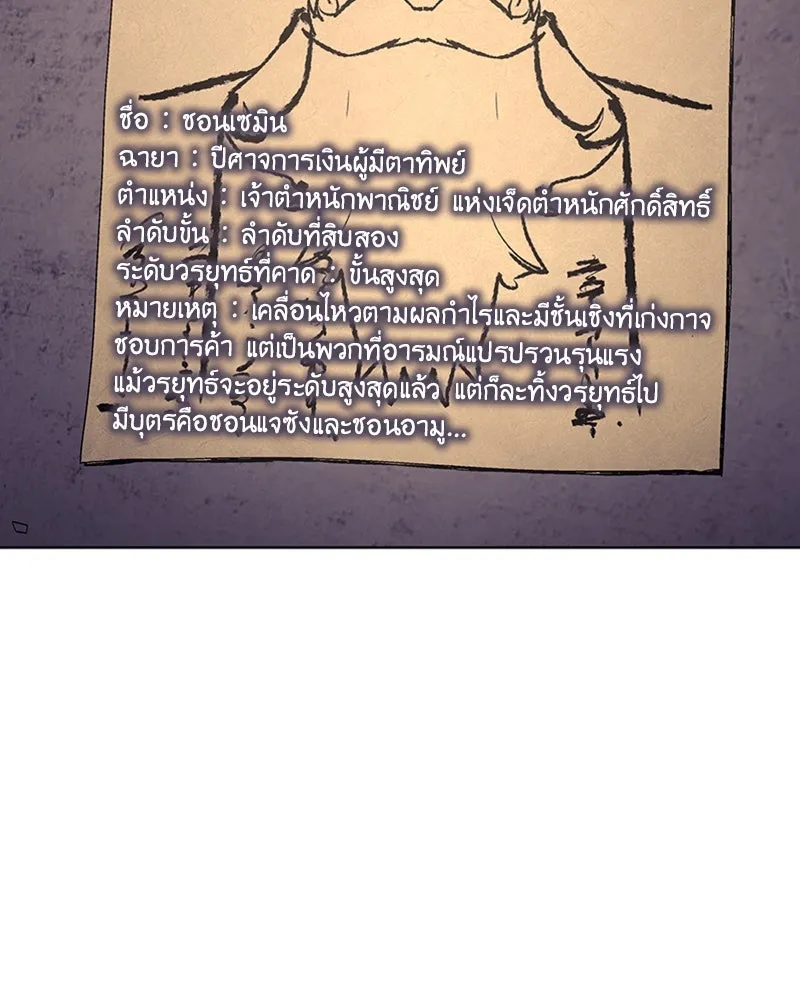 ชื่อ : ชอนเซมิน
ฉายา : ปีศาจการเงินผู้มีตาทิพย์
ตำแหน่ง : เจ้าตำหนักพาณิชย์ แห่งเจ็ดตำหนักศักดิ์สิทธิ์
ลำดับขั้น : ลำดับที่สิบสอง
ระดับวรยุทธ์ที่คาด : ขั้นสูงสุด
หมายเหตุ : เคลื่อนไหวตามผลกำไรและมีชั้นเชิงที่เก่งกาจ
ชอบการค้า แต่เป็นพวกที่อารมณ์แปรปรวนรุนแรง
แม้วรยุทธ์จะอยู่ระดับสูงสุดแล้ว แต่ก็ละทิ้งวรยุทธ์ไป
มีบุตรคือชอนแจซังและชอนอามู...